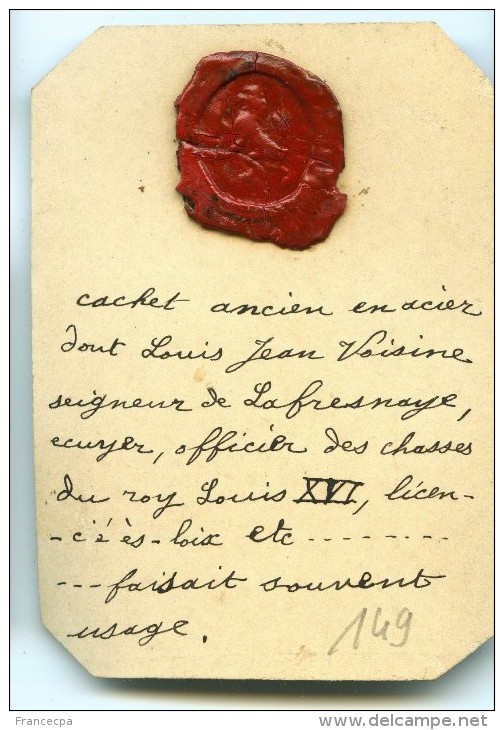 cachet ancien en acier
dont Louis Jean Voisine
seigneur de Lafresnaye,
ecuyer, officier des chasses
du roy Louis XVI, licen-
-c'é ès-loix etc ---------
---faisait souvent
usage.
149
Francecpa
www.delcampe.net